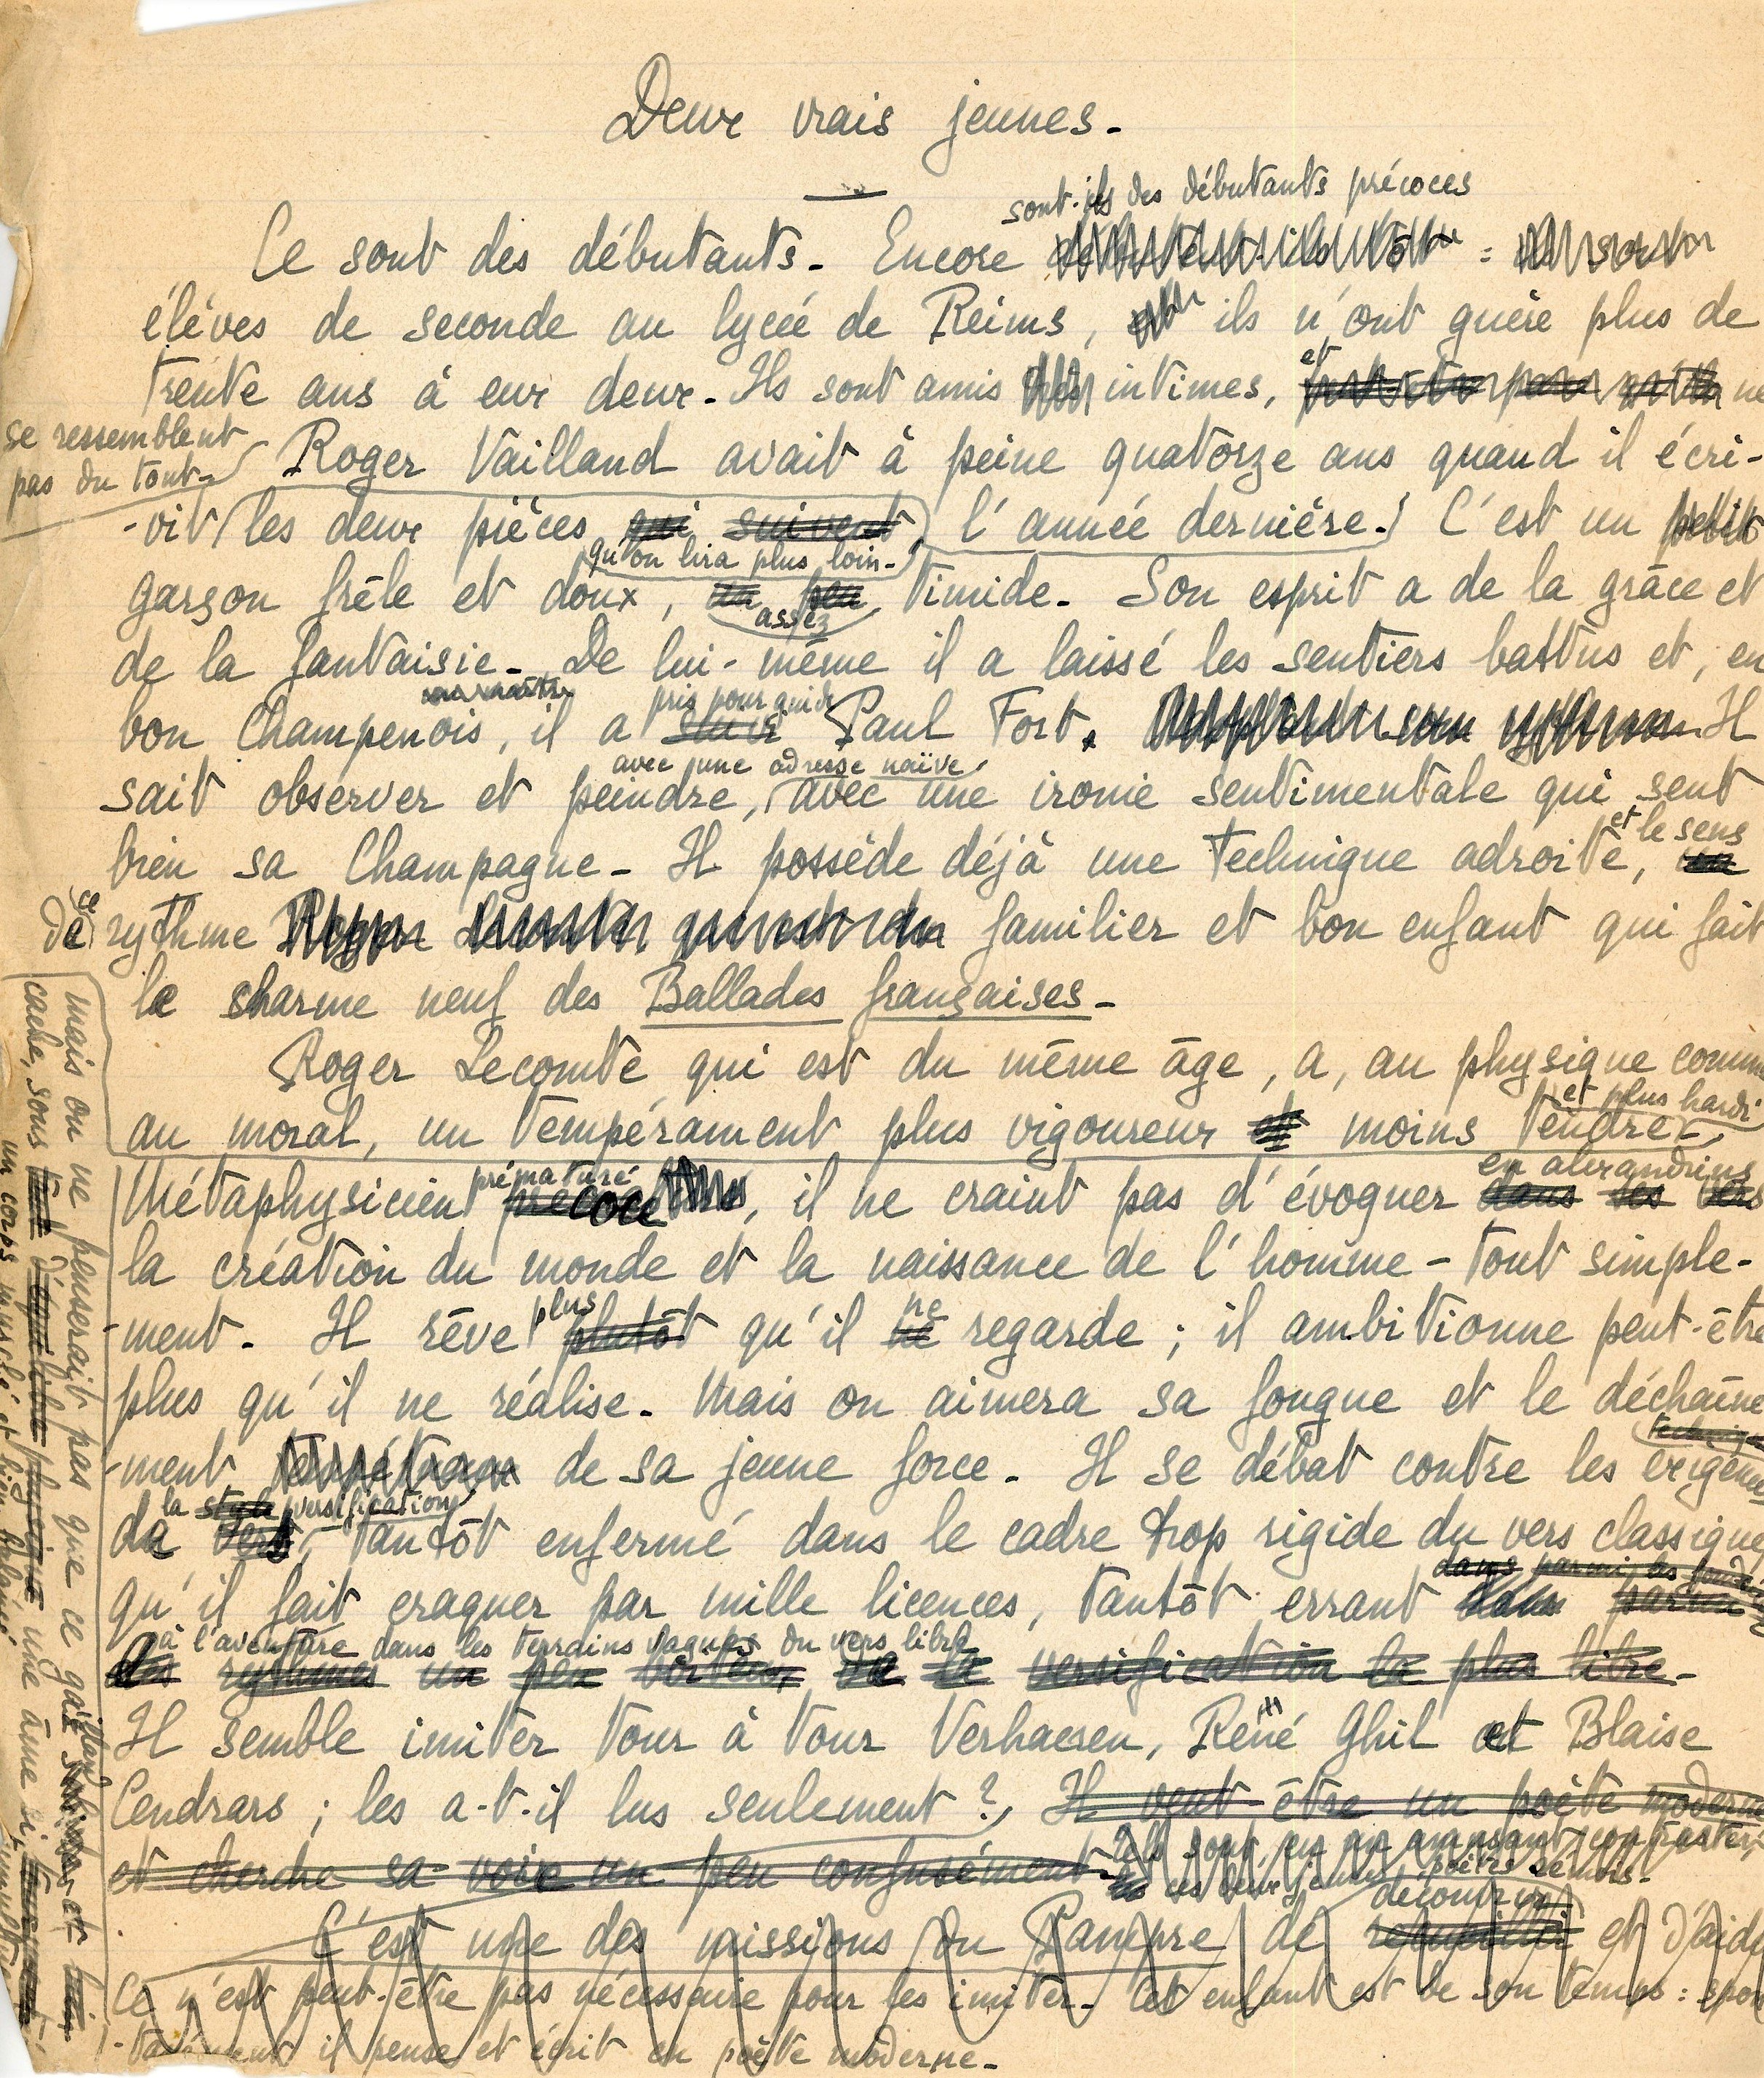 Deux vrais jeunes.
sont-ils des débutants précoces
Ce sont des débutants. Encore :
élèves de seconde au lycée de Reims, ils n'ont guère plus de
trente ans à eux deux. Ils sont amis très intimes, et ne
se ressemblent
pas du tout.
Roger Vailland avait à peine quatorze ans quand il écri-
-vit les deux pièces qui suivent l'année dernière. C'est un petit
qu'on lira plus loin.
garçon frêle et doux, un peu timide. Son esprit a de la grâce et
assez
de la fantaisie. De lui-même il a laissé les sentiers battus et, en
pris pour guide
bon Champenois, il a suivi Paul Fort. Il
avec une adresse naïve
sait observer et peindre, avec une ironie sentimentale qui sent
et le sens
bien sa Champagne. Il possède déjà une technique adroite, un
de ce rythme familier et bon enfant qui fait
le charme neuf des Ballades françaises.
Roger Lecomte qui est du même âge, a, au physique comme
et plus hardi
au moral, un tempérament plus vigoureux et moins tendre.
prématuré
en alexandrins
Métaphysicien précoce, il ne craint pas d'évoquer dans ses vers
la création du monde et la naissance de l'homme - tout simple-
plus
ne
-ment. Il rêve plutôt qu'il ne regarde ; il ambitionne peut-être
plus qu'il ne réalise. Mais on aimera sa fougue et le déchaîne
-ment de sa jeune force. Il se débat contre les exigences
la style versification
de vers, tantôt enfermé dans le cadre trop rigide du vers classique
qu'il fait craquer par mille licences, tantôt errant dans parmi
dans parmi les
à l'aventure dans les terrains vagues du vers libre
des rythmes un peu de la versification la plus libre.
Il semble imiter tour à tour Verhaeren, René Ghil et Blaise
Cendrars ; les a-t-il lus seulement ? Il veut être un poète moderne
et cherche sa voie un peu confusément.
sont en un amusant contraste,
ces deux jeunes poètes rémois.
découvrir
C'est une des missions du Pampre de et d'aide
Ce n'est peut-être pas nécessaire pour les imiter. Cet enfant est de son temps : spon
-tanément il pense et écrit en poète moderne.
mais on ne penserait pas que ce gaillard
cache, sous d'équilibre physique, une âme si
un corps musclé et bien balancé